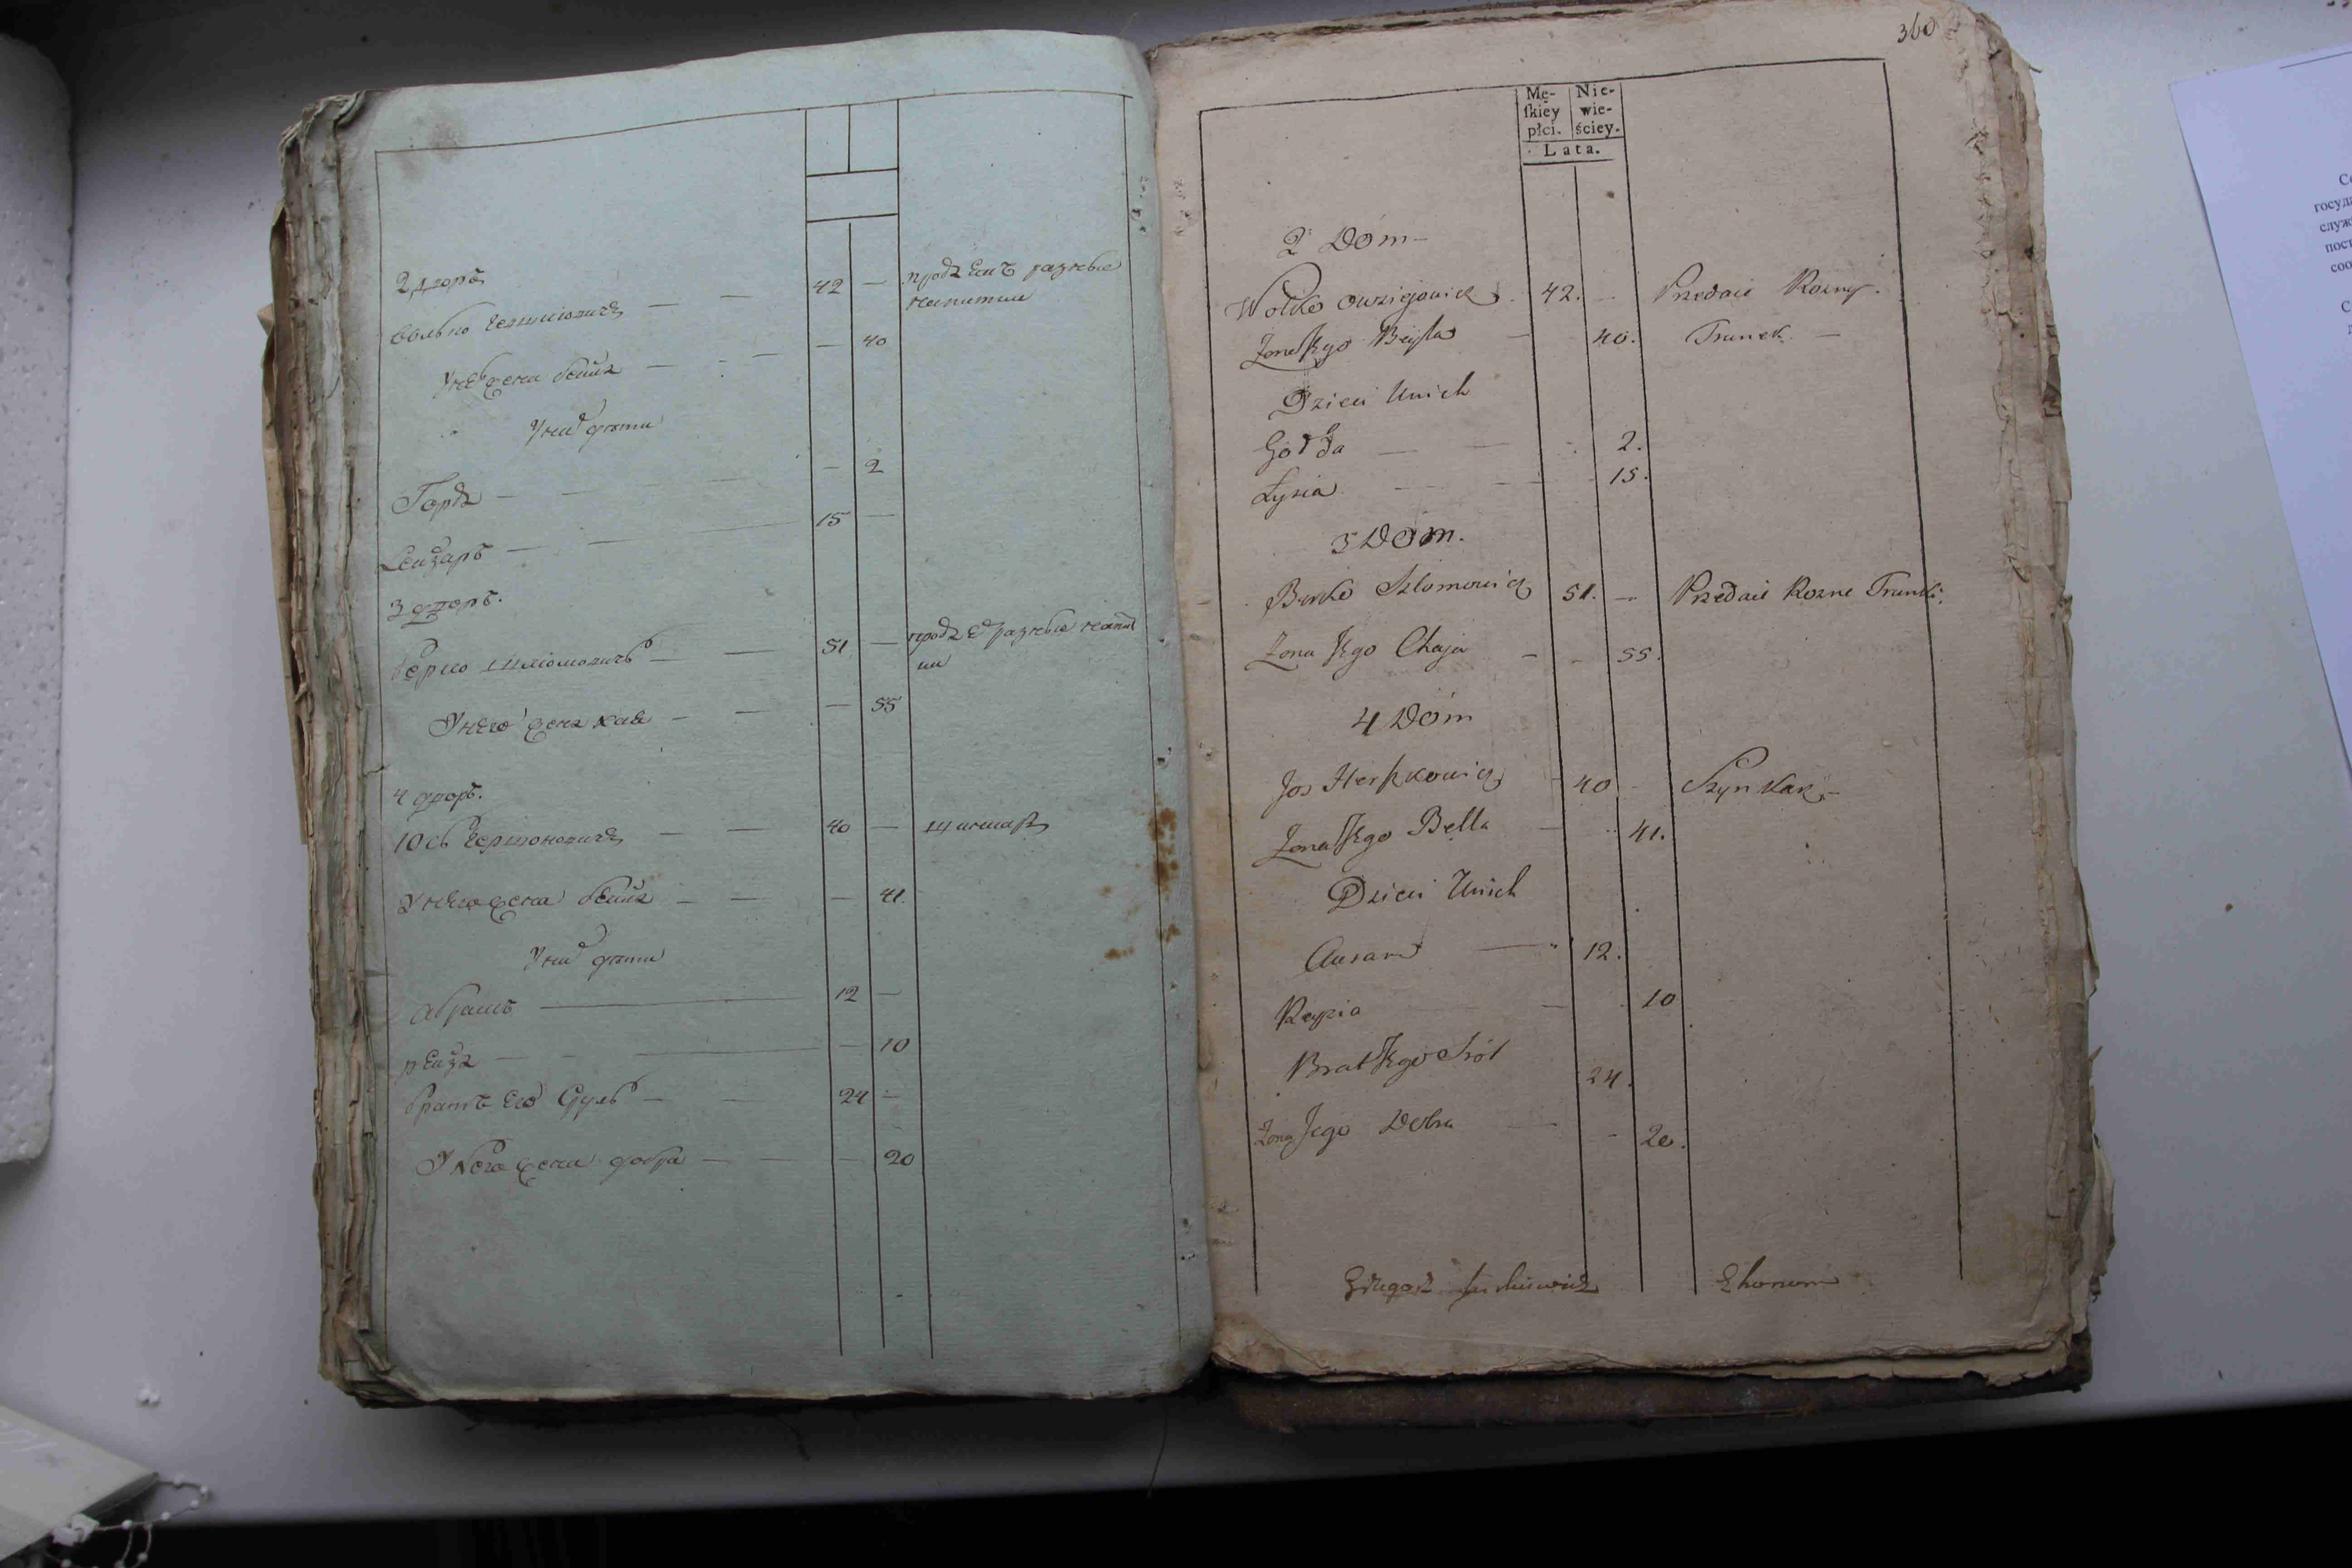 2 дворъ
Волько
42 — продаетъ разные
напитки
У него жена бейла — — — 40
У них дети
Горда — — — 2
Лейзаръ — — 15 —
3 дворъ.
Берко Шліомовичъ — — 51 — прода Ет разные напит
ки
У него жена хая — — — 55
4 дворъ.
Юсь Гершоновичъ — — 40 — шинкар
У него жена бейла — — — 41.
У них дети
Абрамъ — 12 —
рейза — — — 10
братъ Его Сруль — — 24 —
У Него жена добра — — — 20
360
Mę-
skiey
płci.
Nie-
wie-
ściey.
Lata.
2 Dóm —
Wolko 42. — Przedaie Rozny.
Żona Jego Beyla — 40. Trunek. —
Dzieci Unich
Gorda — — 2.
Łyzia — — 15.
3 Dom.
Berko Szlomowicz 51. — Przedaie Rozne Trunki.
Żona Jego Chaja — — 55.
4 Dóm
Jos Herszkowicz — 40 — Szynkarz —
Żona Jego Bella — 41.
Dzieci Unich
— 12.
Reyzia — 10
Brat Jego Sról
24.
Żona Jego Dobra — — 20.
Ekonom